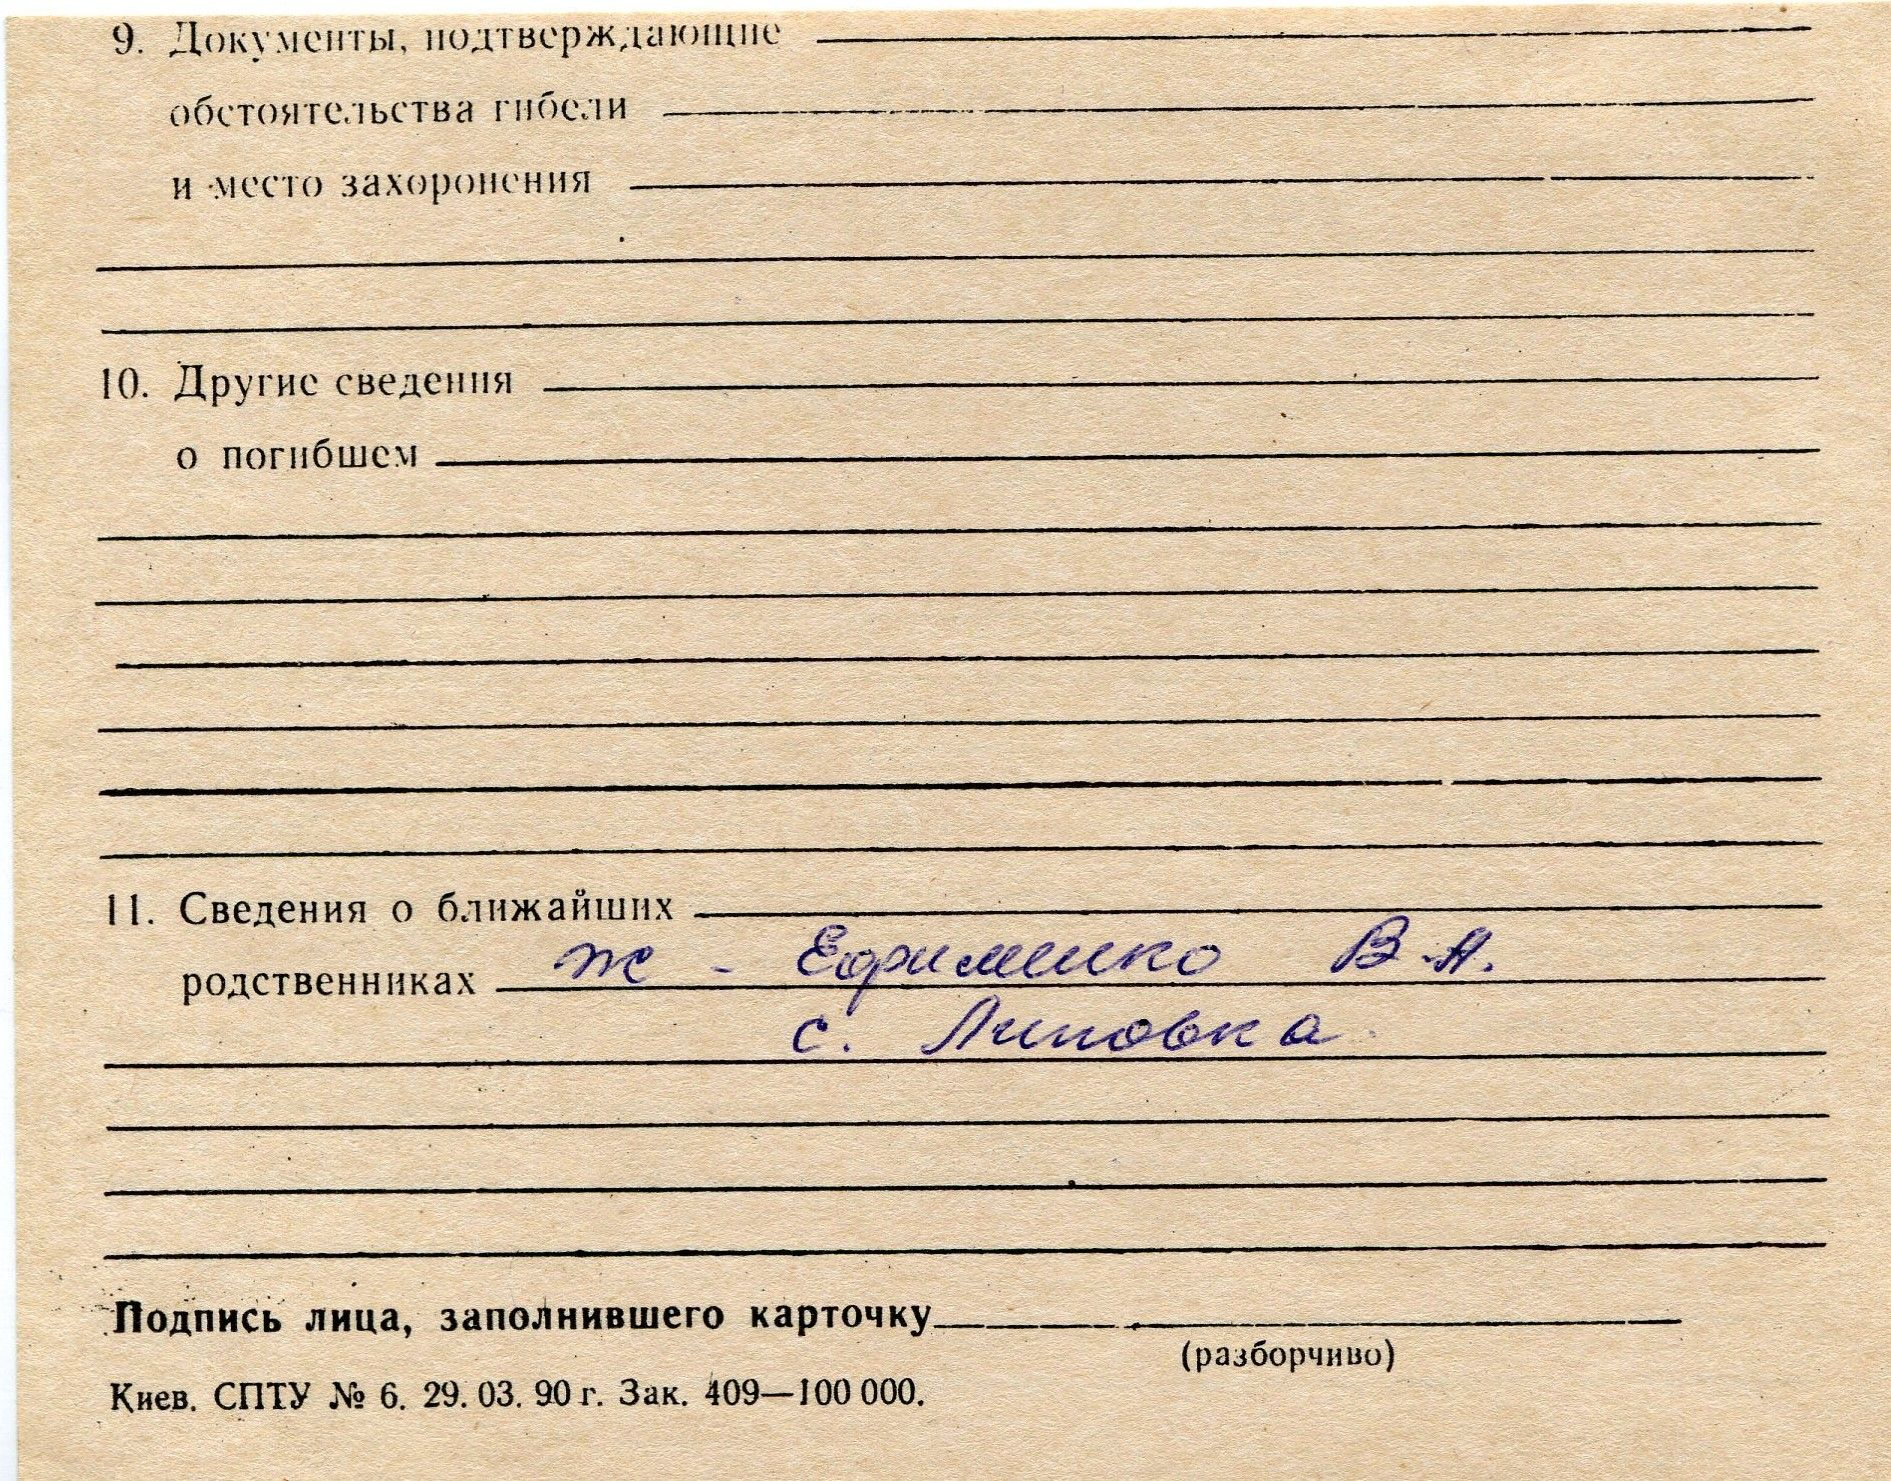 9. Документы, подтверждающие
обстоятельства гибели
и место захоронения
10. Другие сведения
о погибшем
11. Сведения о ближайших
родственниках ж - Ефименко В.А.
с. Липовка
Подпись лица, заполнившего карточку
(разборчиво)
Киев. СПТУ № 6. 29. 03. 90 г. Зак. 409—100 000.